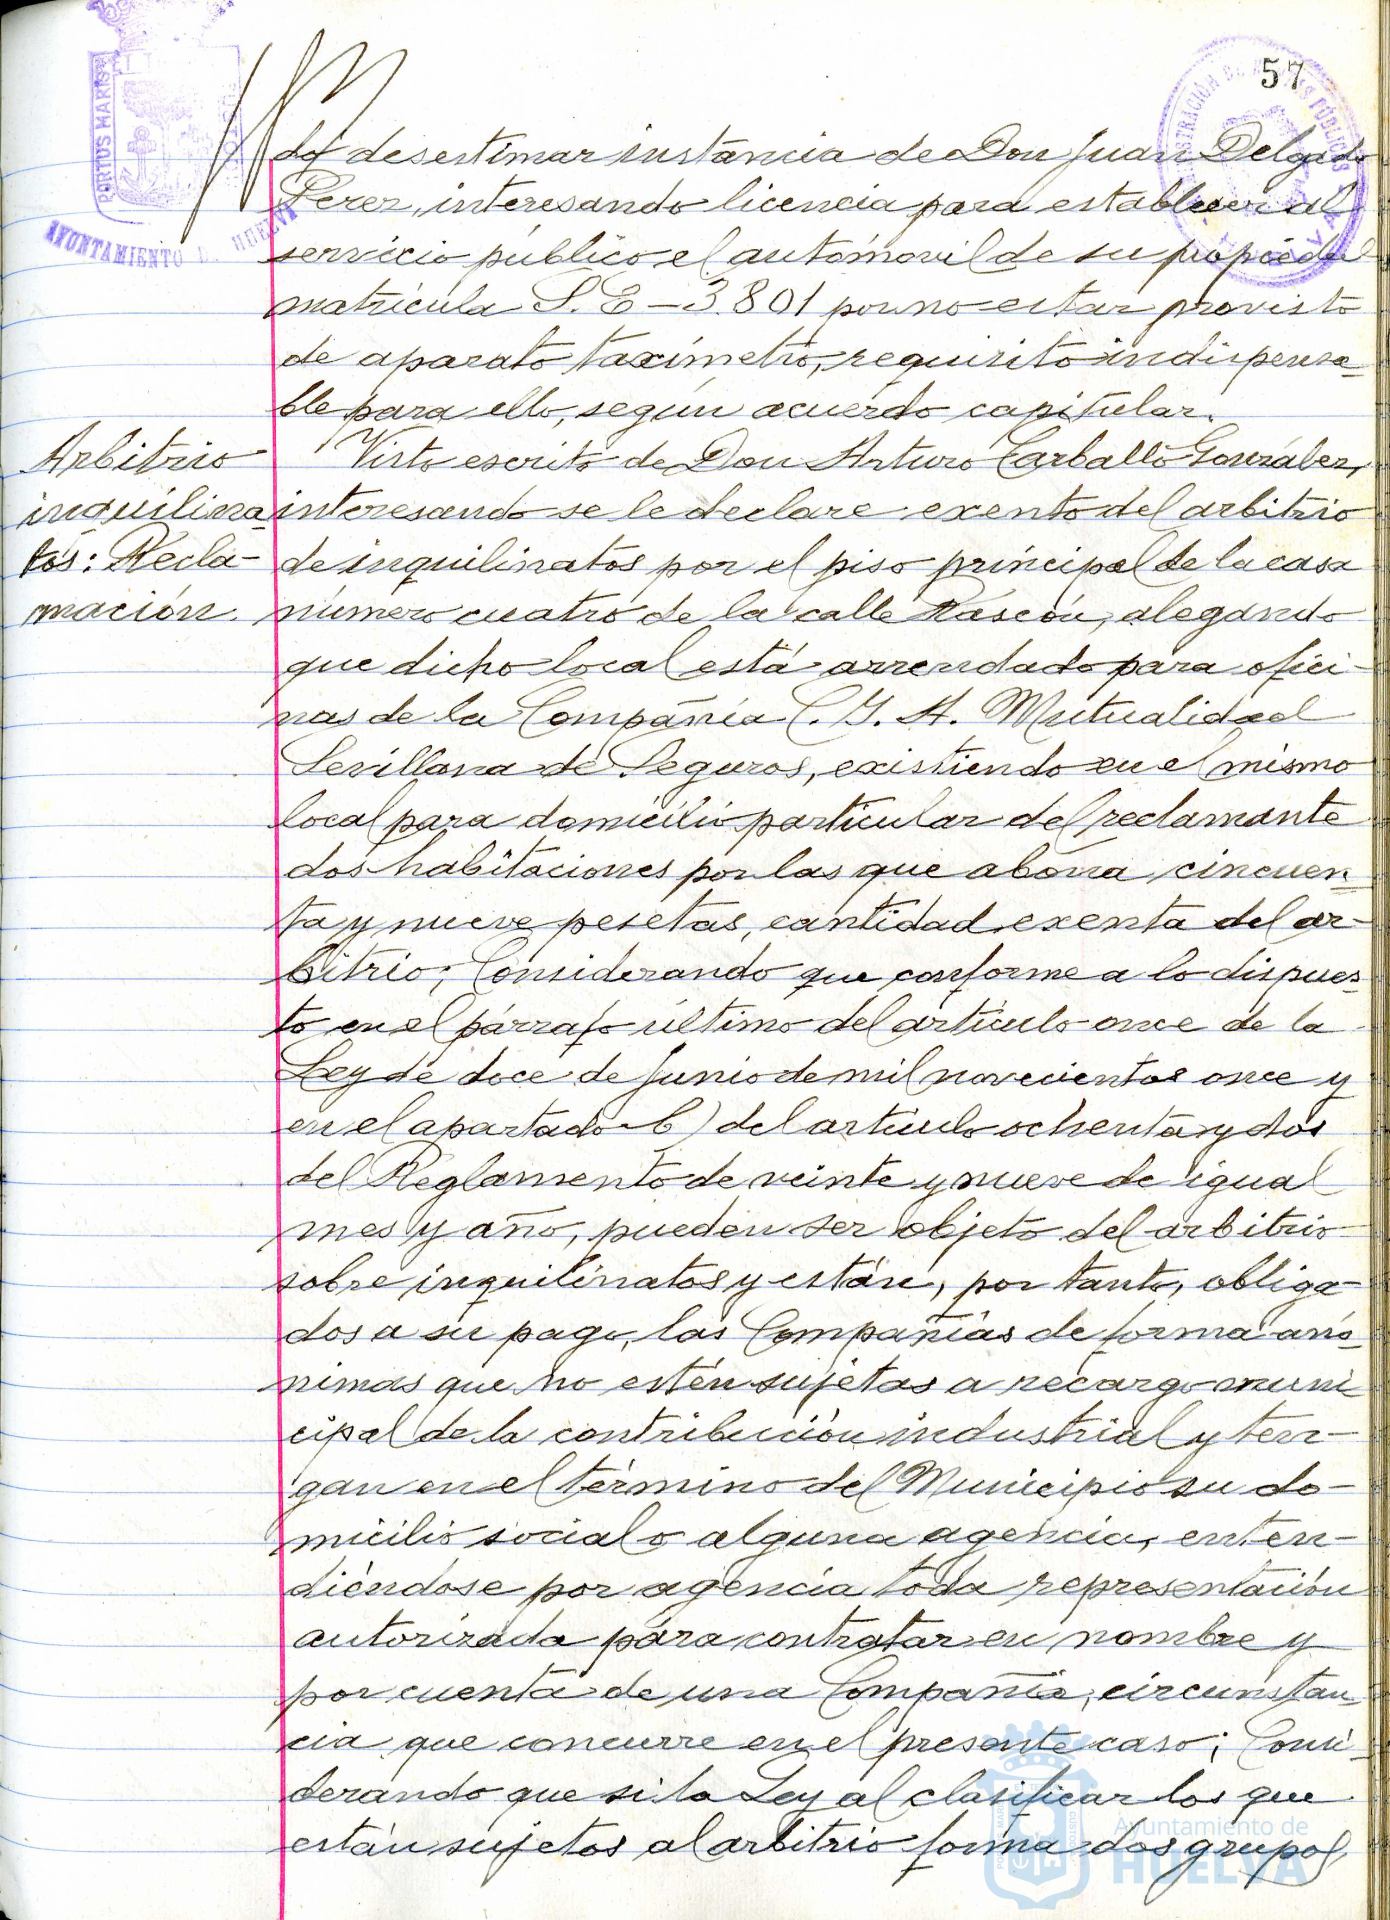 57
PORTUS MARIS
AYUNTAMIENTO DE HUELVA
dó desestimar instancia de Don Juan Delgado
Perez, interesando licencia para establecer al
servicio público el automóvil de su propiedad
matrícula S.E-3801 por no estar provisto
de aparato taxímetro, requisito indispensa-
ble para ello, según acuerdo capitular.
Arbitrio
inquilina-
tos: Recla-
mación.
Visto escrito de Don Arturo Carballo González,
interesando se le declare exento del arbitrio
de inquilinatos por el piso principal de la casa
número cuatro de la calle Rascón, alegando
que dicho local está arrendado para ofici-
nas de la Compañía C. Y. A. Mutualidad
Sevillana de Seguros, existiendo en el mismo
local para domicilio particular del reclamante
dos habitaciones por las que abona cincuen-
ta y nueve pesetas, cantidad exenta del ar-
bitrio; Considerando que conforme a lo dispues-
to en el párrafo último del artículo once de la
Ley de doce de Junio de mil novecientos once y
en el apartado b) del artículo ochenta y dos
del Reglamento de veinte y nueve de igual
mes y año, pueden ser objeto del arbitrio
sobre inquilinatos y están, por tanto, obliga-
dos a su pago, las Compañías de forma anó-
nimas que no estén sujetas a recargo muni
cipal de la contribución industrial y ten-
gan en el término del Municipio su do-
micilio social o alguna agencia, enten-
diéndose por agencia toda representación
autorizada para contratar en nombre y
por cuenta de una Compañía, circunstan-
cia que concurre en el presente caso; Consi-
derando que si la Ley al clasificar los que
están sujetos al arbitrio forma dos grupos,
Ayuntamiento de
HUELVA